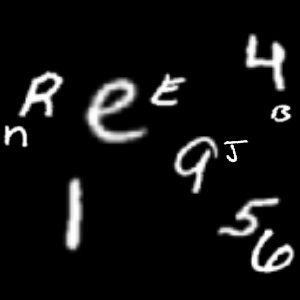 4
R e E
B
n
9 J
1
5
6